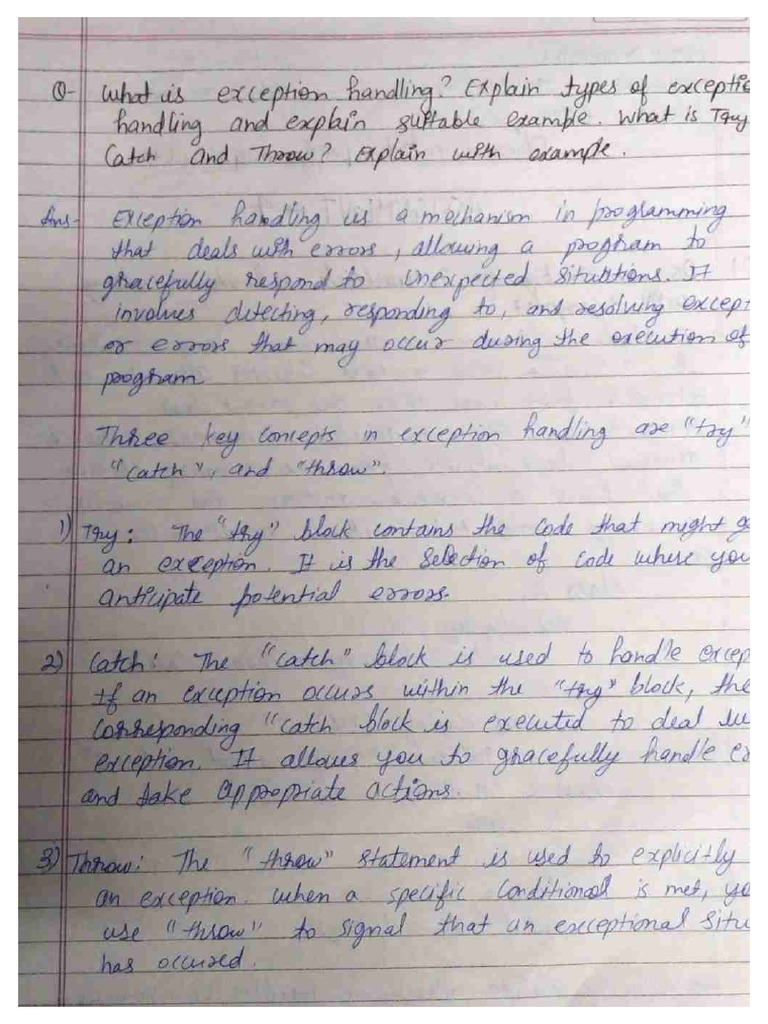 Q- What is exception handling? Explain types of exceptio
handling and explain suitable example. What is Try
Catch and Throw? Explain with example.
Ans- Exception handling is a mechanism in programming
that deals with errors, allowing a program to
gracefully respond to unexpected situations. It
involves detecting, responding to, and resolving except
or errors that may occur during the execution of
program
Three key concepts in exception handling are "try"
"catch", and "throw".
1) Try: The "try" block contains the code that might g
an exception. It is the selection of code where you
anticipate potential errors.
2) Catch: The "catch" block is used to handle excep
If an exception occurs within the "try" block, the
corresponding "catch block is executed to deal w
exception. It allows you to gracefully handle ex
and take appropriate actions.
3) Throw: The "throw" statement is used to explicitly
an exception. when a specific conditional is met, yo
use "throw" to signal that an exceptional situ
has occured.